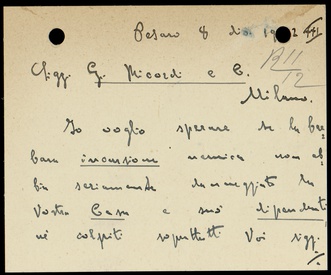 Pesaro 8 dic. 1942 XXI
R 11/12
Sigg. G. Ricordi e C.
Milano.
Io voglio sperare che la bar
bara incursione nemica non ab
bia seriamente danneggiato la
Vostra Casa e suoi dipendenti
né colpiti soprattutti Voi sigg.